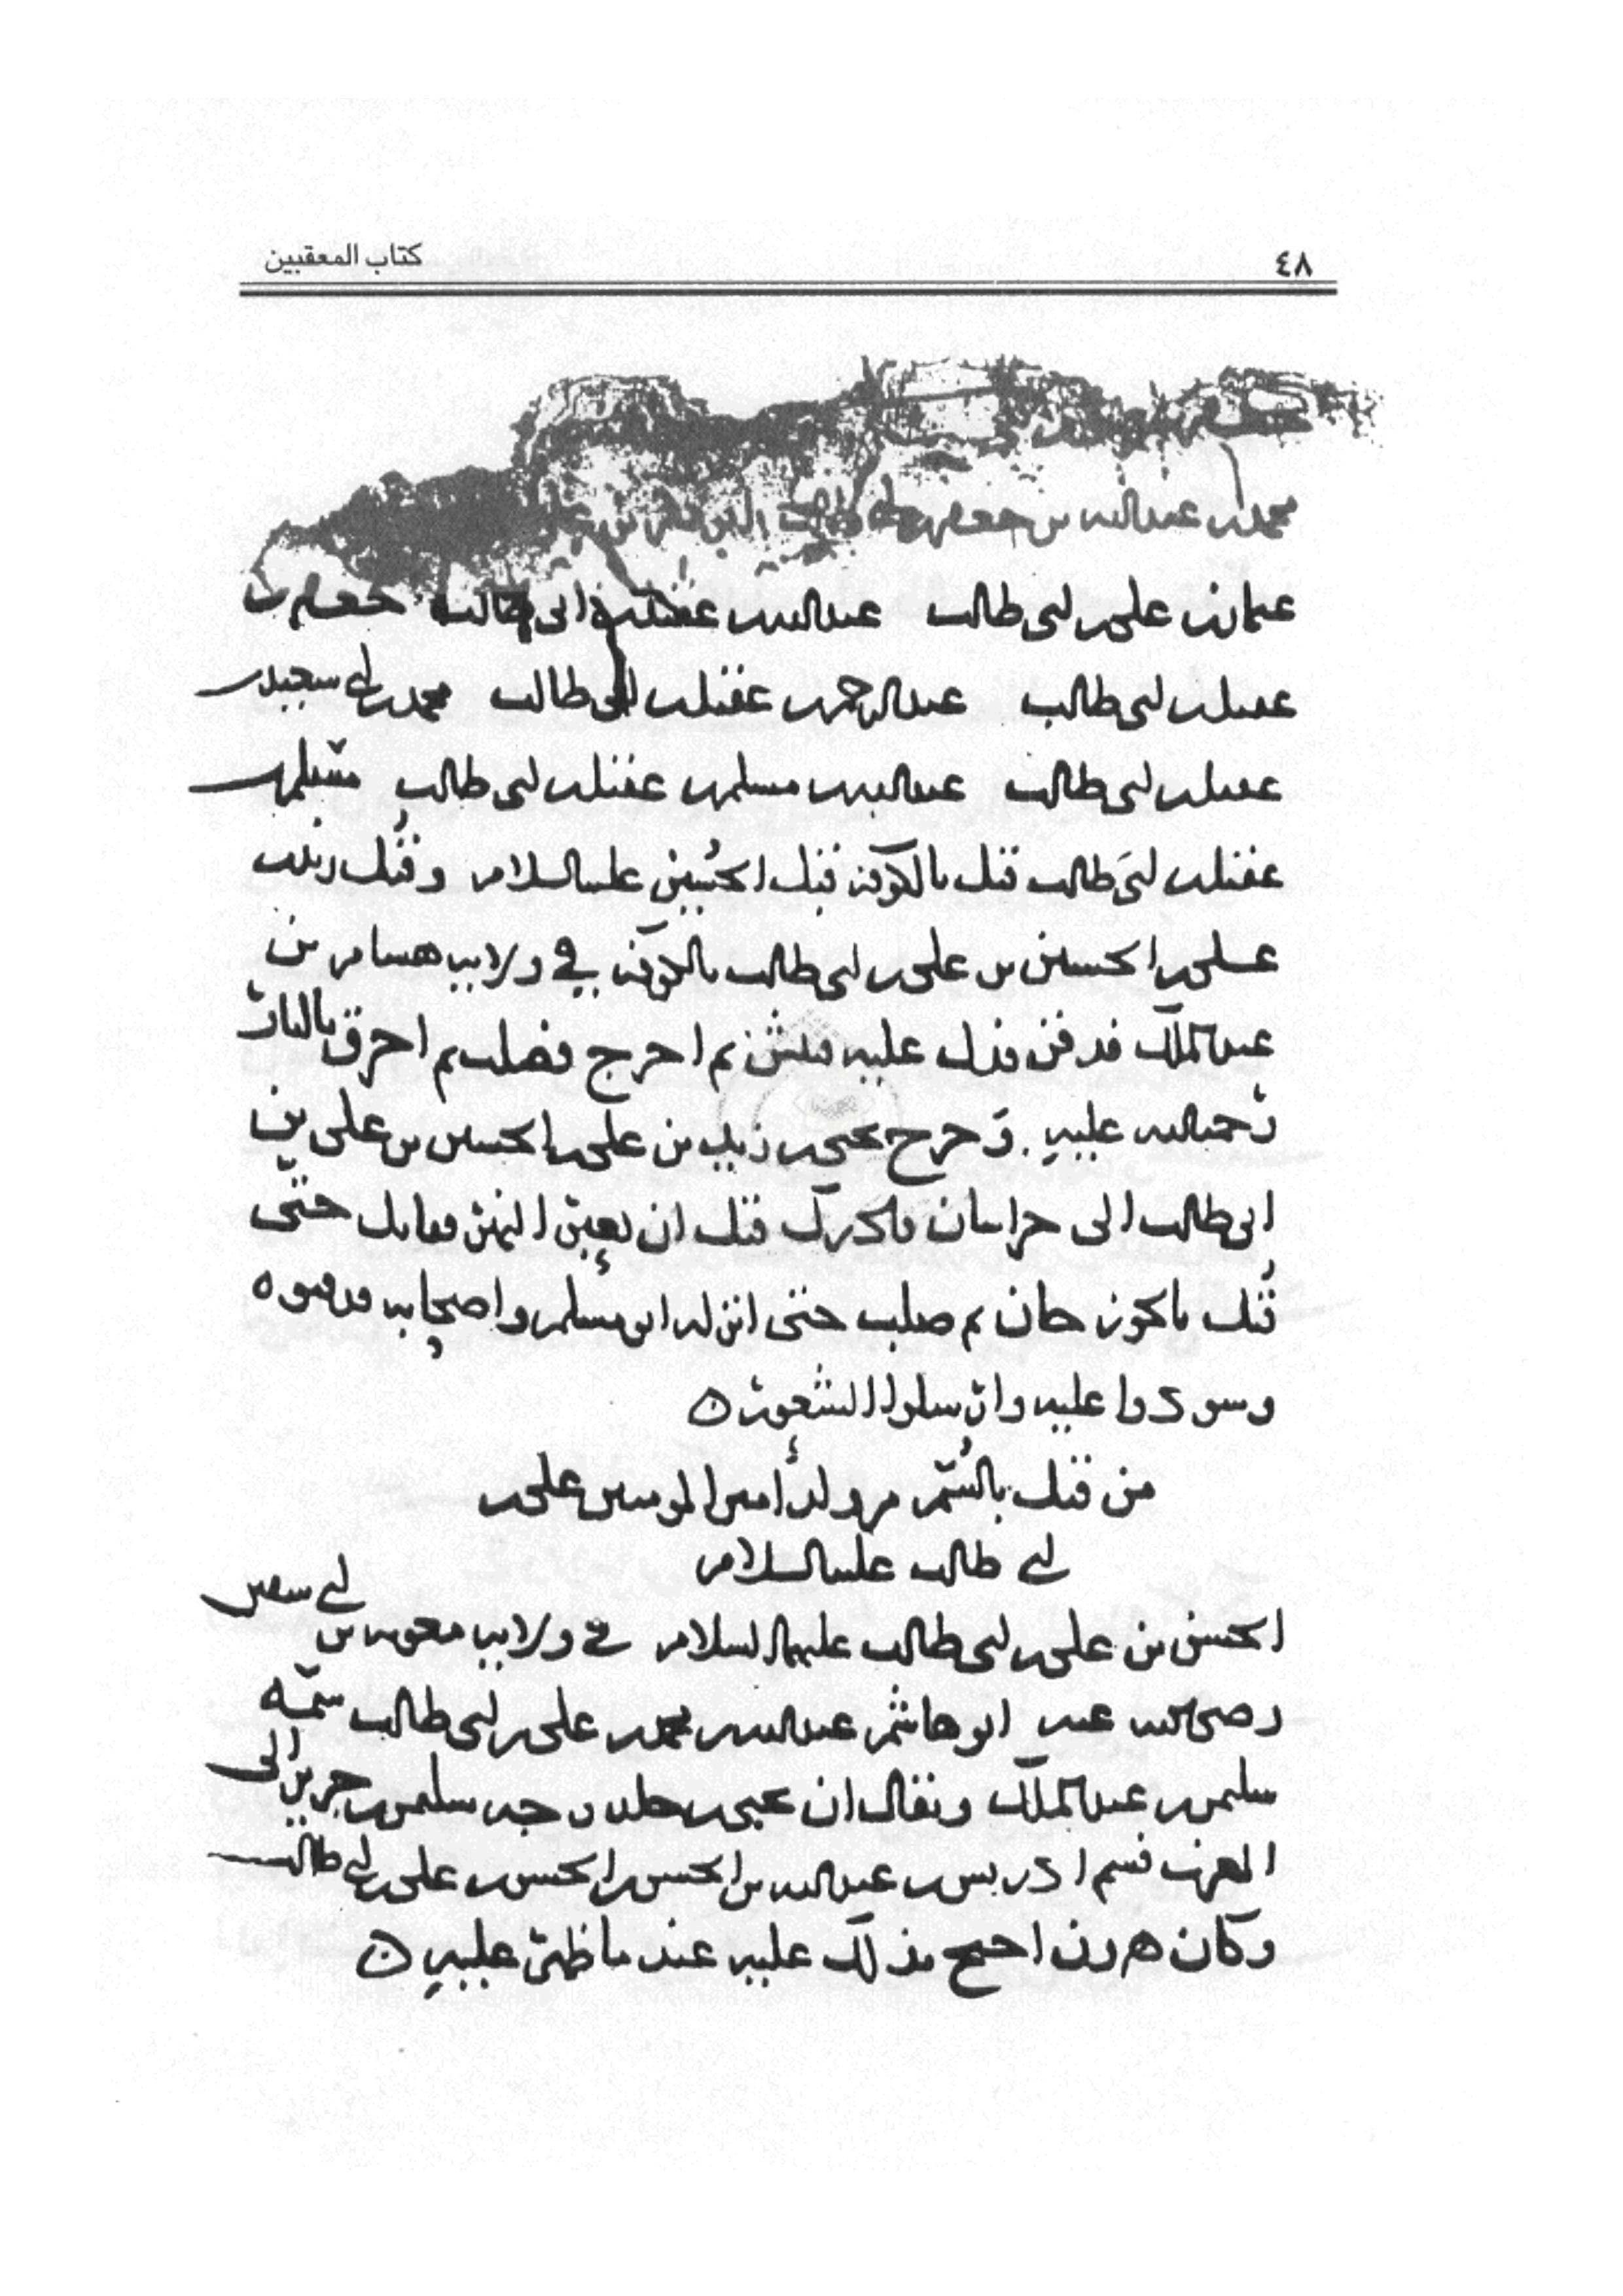 ٤٨ كتاب المعقبين
محمد بن عبدالله بن جعفر بن ابي طالب
عثمان بن علي بن ابي طالب عبدالله بن عقيل بن ابي طالب جعفر بن
عقيل بن ابي طالب عبدالرحمن بن عقيل بن ابي طالب محمد بن ابي سعيد بن
عقيل بن ابي طالب عبدالله بن مسلم بن عقيل بن ابي طالب مسلم بن
عقيل بن ابي طالب قتل بالكوفة قبل الحسين عليه السلام وقتل زيد بن
علي بن الحسين بن علي بن ابي طالب بالكوفة في ولاية هشام بن
عبدالملك فدفن فدل عليه فنبش ثم اخرج فصلب ثم احرق بالنار
رحمة الله عليه . وخرج يحيى بن زيد بن علي بن الحسين بن علي بن
ابي طالب الى خراسان فادرك قبل ان يعبر النهر فقاتل حتى
قتل بالجوزجان ثم صلب حتى انزله ابو مسلم واصحابه فدفنوه
وسودوا عليه وارسلوا الشعور ٥
من قتل بالسم من ولد أمير المومنين علي بن
ابي طالب عليه السلام
الحسن بن علي بن ابي طالب عليهما السلام في ولاية معوية بن ابي سفين
رضي الله عنه ابو هاشم عبدالله بن محمد بن علي بن ابي طالب سمه
سليمن بن عبدالملك ويقال ان يحيى بن خلد وجه سليمن بن جرير الى
المغرب فسم ادريس بن عبدالله بن الحسن بن الحسن بن علي بن ابي طالب
وكان هرون احتج بذلك عليه عند ما ظهر عليه ٥